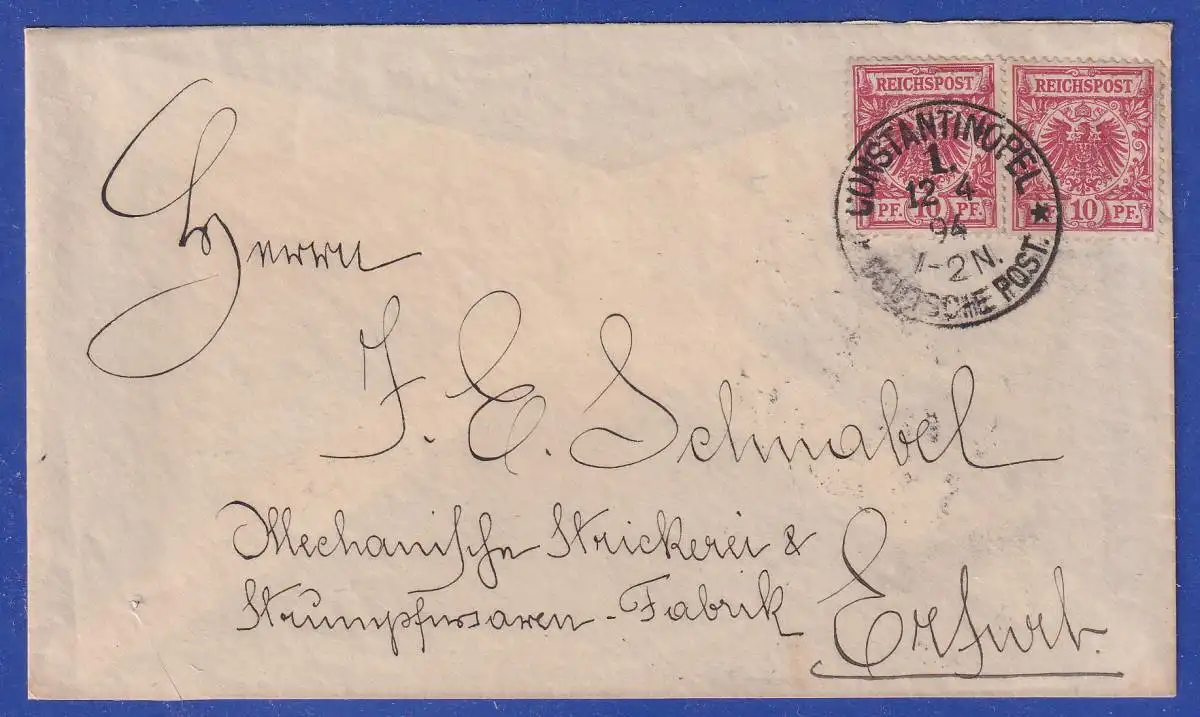 REICHSPOST REICHSPOST
PF. 10 PF. 10 PF.
CONSTANTINOPEL
1.
12 4
94
1-2 N.
* DEUTSCHE POST. *
Herrn
J. E. Schnabel
Mechanische Strickerei &
Strumpfwaren-Fabrik
Erfurt.